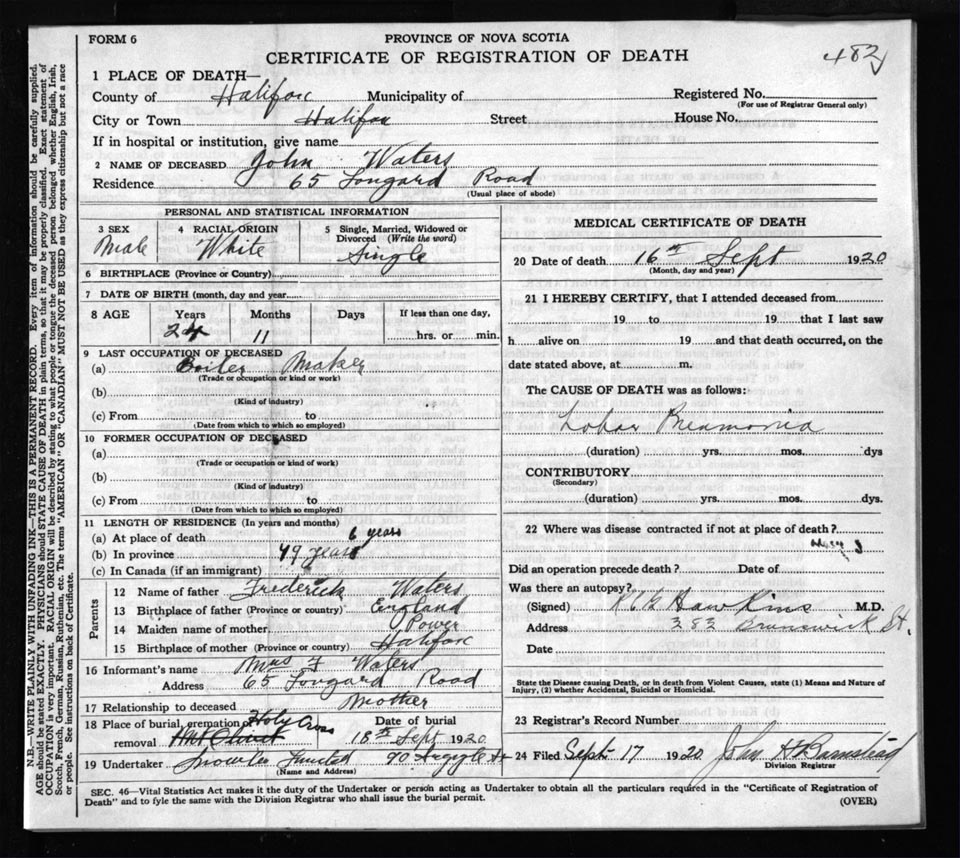 FORM 6
PROVINCE OF NOVA SCOTIA
CERTIFICATE OF REGISTRATION OF DEATH
482
1 PLACE OF DEATH—
County of Halifax Municipality of Registered No.
(For use of Registrar General only)
City or Town Halifax Street House No.
If in hospital or institution, give name
2 NAME OF DECEASED John Waters
Residence 65 Longard Road
(Usual place of abode)
PERSONAL AND STATISTICAL INFORMATION
3 SEX Male
4 RACIAL ORIGIN White
5 Single, Married, Widowed or Divorced (Write the word) Single
6 BIRTHPLACE (Province or Country)
7 DATE OF BIRTH (month, day and year)
8 AGE Years Months Days If less than one day,
24 11 hrs. or min.
9 LAST OCCUPATION OF DECEASED
(a) Boiler Maker
(Trade or occupation or kind or work)
(b)
(Kind of industry)
(c) From to
(Date from which to which so employed)
10 FORMER OCCUPATION OF DECEASED
(a)
(Trade or occupation or kind of work)
(b)
(Kind of industry)
(c) From to
(Date from which to which so employed)
11 LENGTH OF RESIDENCE (In years and months)
(a) At place of death 6 years
(b) In province 49 years
(c) In Canada (if an immigrant)
Parents
12 Name of father Frederick Waters
13 Birthplace of father (Province or country) England
14 Maiden name of mother Power
15 Birthplace of mother (Province or country) Halifax
16 Informant's name Mrs F Waters
Address 65 Longard Road
17 Relationship to deceased Mother
18 Place of burial, cremation or removal Holy Cross
Date of burial 18th Sept 1920
19 Undertaker Snow Co Limited 90 Argyle St
(Name and Address)
MEDICAL CERTIFICATE OF DEATH
20 Date of death 16th Sept 1920
(Month, day and year)
21 I HEREBY CERTIFY, that I attended deceased from
19 to 19 that I last saw
h alive on 19 and that death occurred, on the
date stated above, at m.
The CAUSE OF DEATH was as follows:
Lobar Pneumonia
(duration) yrs. mos. dys
CONTRIBUTORY
(Secondary)
(duration) yrs. mos. dys.
22 Where was disease contracted if not at place of death?
Did an operation precede death? Date of
Was there an autopsy?
(Signed) Hawkins M.D.
Address 383 Brunswick St.
Date
State the Disease causing Death, or in death from Violent Causes, state (1) Means and Nature of
Injury, (2) whether Accidental, Suicidal or Homicidal.
23 Registrar's Record Number
24 Filed Sept 17 1920 John H Barnstead
Division Registrar
SEC. 46—Vital Statistics Act makes it the duty of the Undertaker or person acting as Undertaker to obtain all the particulars required in the "Certificate of Registration of
Death" and to fyle the same with the Division Registrar who shall issue the burial permit.
(OVER)
N.B.—WRITE PLAINLY WITH UNFADING INK—THIS IS A PERMANENT RECORD. Every item of information should be carefully supplied.
AGE should be stated EXACTLY. PHYSICIANS should STATE CAUSE OF DEATH in plain terms, so that it may be properly classified. Exact statement of
OCCUPATION is very important. RACIAL ORIGIN will be described by stating to what people or tongue the deceased person belonged whether English, Irish,
Scotch, French, German, Russian, Ruthenian, etc. The terms "AMERICAN" OR "CANADIAN" MUST NOT BE USED as they express citizenship but not a race
or people. See instructions on back of Certificate.